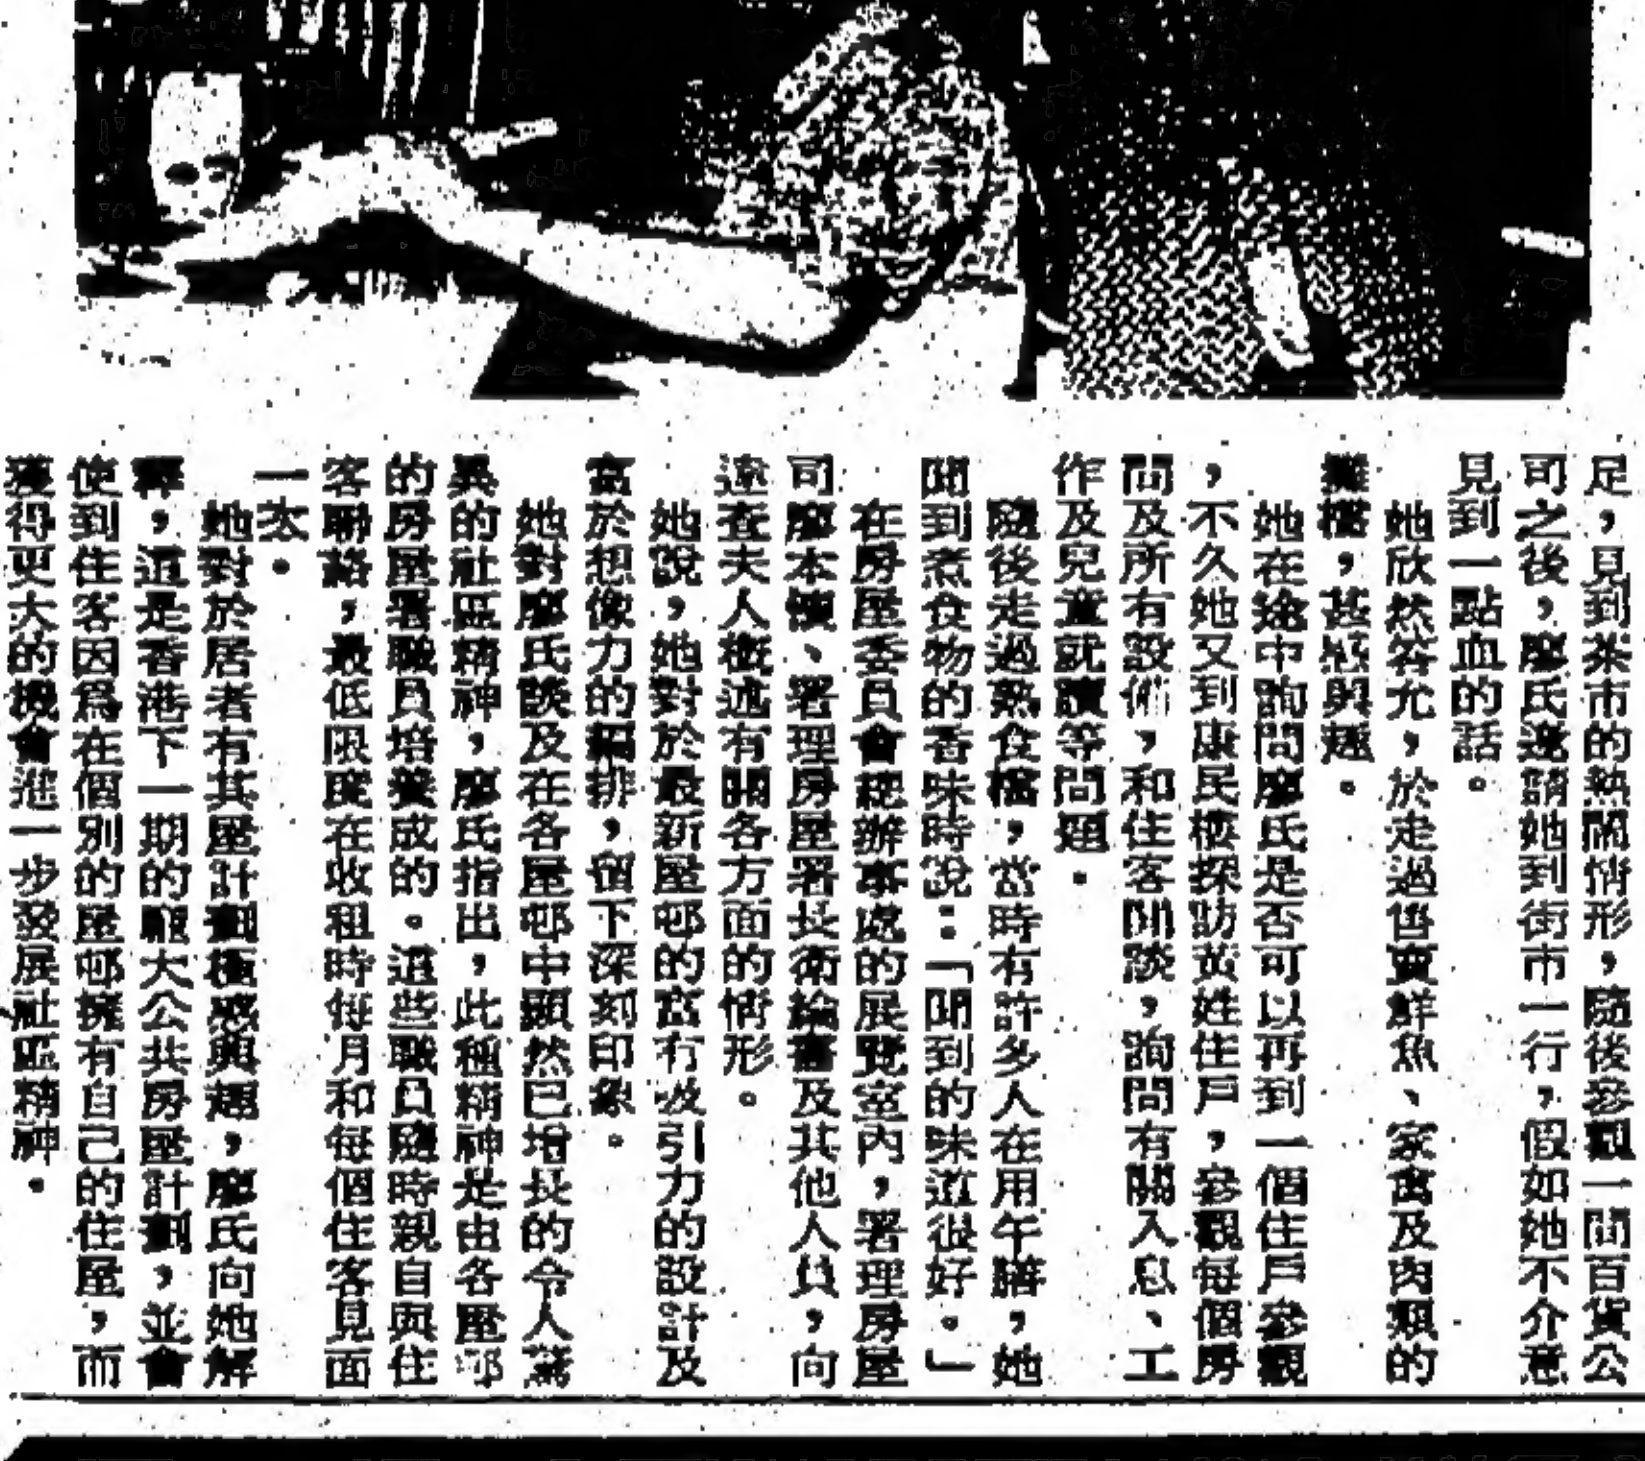 足，見到菜市的熱鬧情形，隨後參觀一間百貨公
司之後，廖氏邀請她到街市一行，假如她不介意
見到一點血的話。
她欣然答允，於走過售賣鮮魚、家禽及肉類的
攤檔，甚感興趣。
她在途中詢問廖氏是否可以再到一個住戶參觀
，不久她又到康民樓探訪黃姓住戶，參觀每個房
間及所有設備，和住客閒談，詢問有關入息、工
作及兒童就讀等問題。
隨後走過熟食檔，當時有許多人在用午膳，她
聞到煮食物的香味時說：「聞到的味道很好。」
在房屋委員會總辦事處的展覽室內，署理房屋
司廖本懷、署理房屋署長衛綸書及其他人員，向
達查夫人概述有關各方面的情形。
她說，她對於最新屋邨的富有吸引力的設計及
富於想像力的編排，留下深刻印象。
她對廖氏談及在各屋邨中顯然已增長的令人驚
異的社區精神，廖氏指出，此種精神是由各屋邨
的房屋署職員培養成的。這些職員隨時親自與住
客聯絡，最低限度在收租時每月和每個住客見面
一次。
她對於居者有其屋計劃極感興趣，廖氏向她解
釋，這是香港下一期的龐大公共房屋計劃，並會
使到住客因為在個別的屋邨擁有自己的住屋，而
獲得更大的機會進一步發展社區精神。